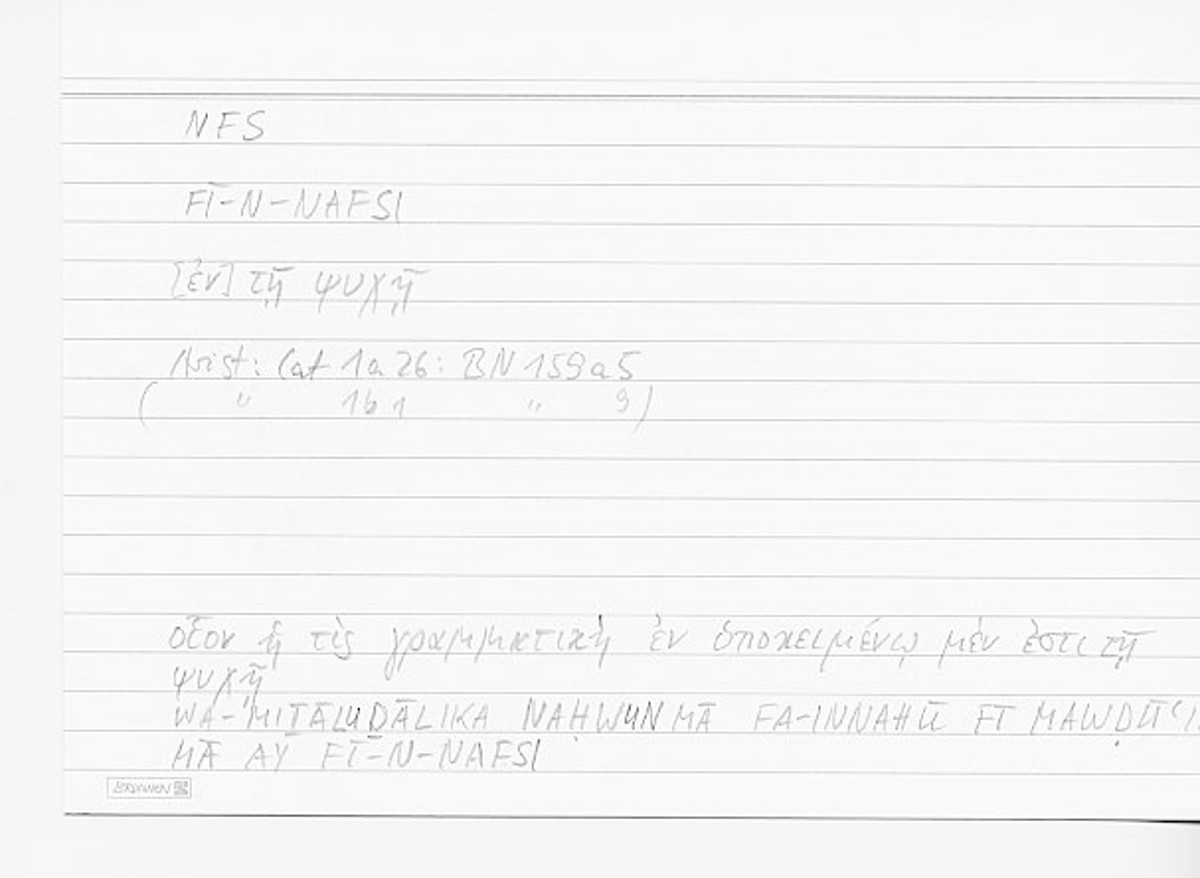 NFS
FĪ-N-NAFSI
[ἐν] τῇ ψυχῇ
Arist: Cat 1a26: BN 159a5
( " 1b1 " 9)
οἷον ἡ τὶς γραμματικὴ ἐν ὑποκειμένῳ μέν ἐστι τῇ
ψυχῇ
WA-MIṮĀLU ḎĀLIKA NAḤWUN MĀ FA-INNAHŪ FĪ MAWḌŪʿI
MĀ AY FĪ-N-NAFSI
BRUNNEN